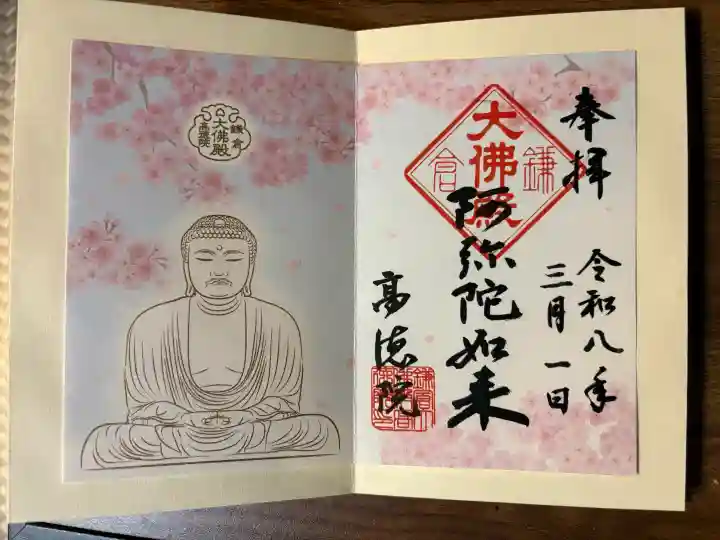 奉拝
令和八年
三月一日
大佛殿
鎌倉
阿弥陀如来
高徳院
鎌倉
大佛殿
高徳院